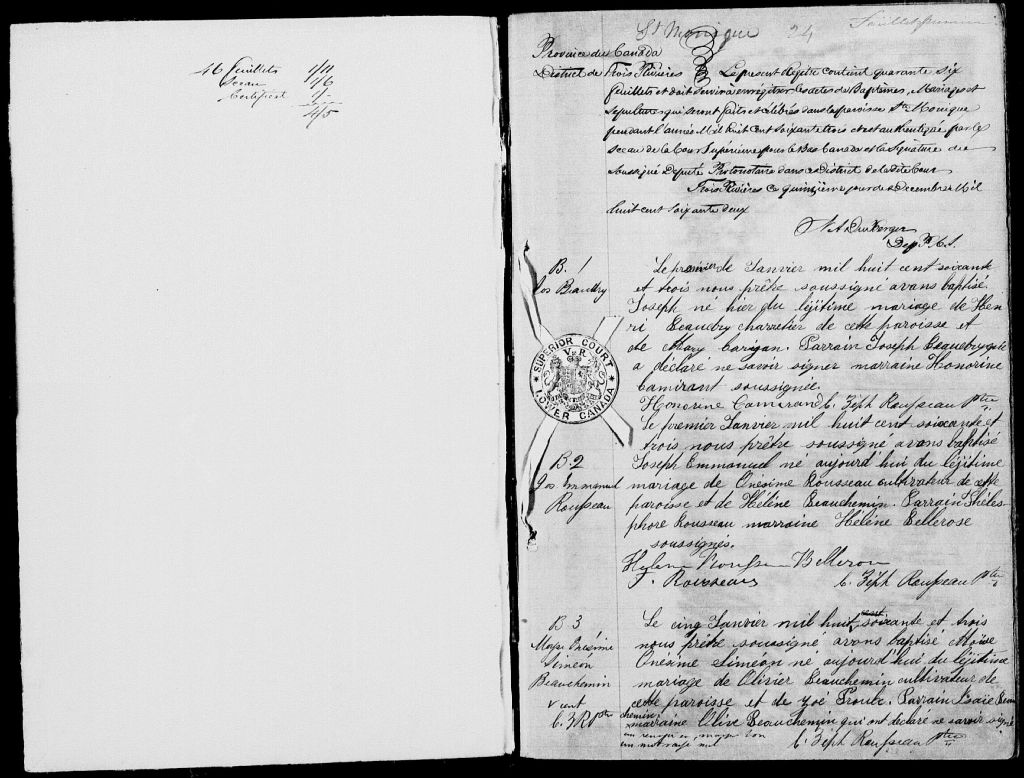 46 feuillets 1/11
Sceau 1/6
Certificat 1/-
4/5
Ste Monique 24 Feuillet premier
Province du Canada
District de Trois Rivières Le present Régitre contient quarante six
feuillets et doit servir à enregistrer les actes de Baptêmes, Mariages et
Sepultures qui seront faits et célébrés dans la paroisse Ste Monique
pendant l'année Mil huit cent soixante trois et est authentiqué par le
sceau de la Cour Supérieure pour le Bas Canada et la Signature du
soussigné Député Protonotaire dans ce District de la dite Cour
Trois Rivières ce quinzième jour de Décembre Mil
huit cent soixante deux
Dep. P. C. S.
B. 1
Jos Beaudry
Le premier de Janvier mil huit cent soixante
et trois nous prêtre soussigné avons baptisé
Joseph né hier du légitime mariage de Hen
ri Beaudry charretier de cette paroisse et
de Mary Carigan. Parrain Joseph Beaudry qui
a déclaré ne savoir signer marraine Honorine
Camirant soussignée.
Honorine Camirand C. Zéph Rousseau Ptre
SUPERIOR COURT
V R
LOWER CANADA
B. 2
Jos Emmanuel
Rousseau
Le premier Janvier mil huit cent soixante et
trois nous prêtre soussigné avons baptisé
Joseph Emmanuel né aujourd'hui du légitime
mariage de Onésime Rousseau cultivateur de cette
paroisse et de Hélène Beauchemin. Parrain Théles
phore Rousseau marraine Hélène Bellerose
soussignés.
T. Rousseau C. Zéph Rousseau Ptre
B 3
Moïse Onésime
Siméon
Beauchemin
v cent
C. Z R Ptre
cent
Le cinq Janvier mil huit v soixante et trois
nous prêtre soussigné avons baptisé Moïse
Onésime Siméon né aujourd'hui du légitime
mariage de Olivier Beauchemin cultivateur de
cette paroisse et de Zoé Proulx. Parrain Isaïe Beau
chemin marraine Olive Beauchemin qui ont déclaré ne savoir signer
un renvoi en marge bon
un mot rayé nul
C. Zéph Rousseau Ptre